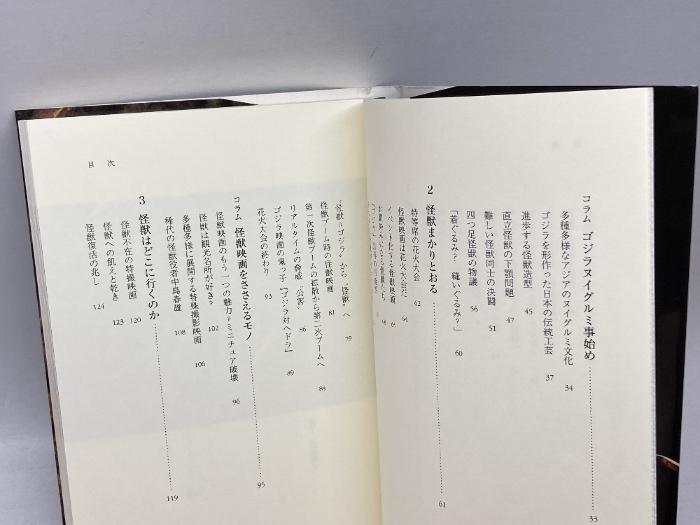 コラム ゴジラヌイグルミ事始め 33
多種多様なアジアのヌイグルミ文化 34
ゴジラを形作った日本の伝統工芸 37
進歩する怪獣造型 45
直立怪獣の下顎問題 47
難しい怪獣同士の決闘 51
四つ足怪獣の物議 56
「着ぐるみ？ 縫いぐるみ？」 60
2 怪獣まかりとおる 61
特等席の花火大会 62
怪獣映画は花火大会だ 64
“怪獣＝ゴジラ”から“怪獣”へ 79
怪獣ブーム時の怪獣映画 81
第一次怪獣ブームの拡散から第二次ブームへ 84
リアルタイムの脅威“公害” 86
ゴジラ映画の鬼っ子『ゴジラ対ヘドラ』 89
花火大会の終わり 93
コラム 怪獣映画をささえるモノ 95
怪獣映画のもう一つの魅力＝ミニチュア破壊 96
怪獣は観光名所が好き？ 102
多種多様に展開する特殊撮影映画 106
稀代の怪獣役者中島春雄 108
3 怪獣はどこに行くのか 119
怪獣不在の特撮映画 120
怪獣への飢えと乾き 123
怪獣復活の兆し 124
目次